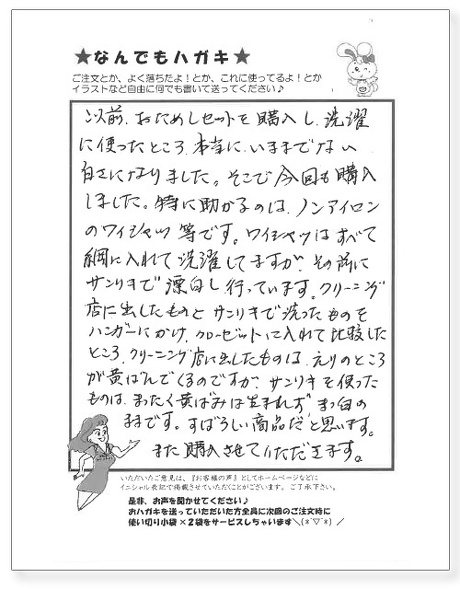 ★なんでもハガキ★
ご注文とか、よく落ちたよ！とか、これに使ってるよ！とか
イラストなど自由に何でも書いて送ってください♪
以前、おためしセットを購入し、洗濯
に使ったところ、本当に、いままでない
白さになりました。そこで今回も購入
しました。特に助かるのは、ノンアイロン
のワイシャツ等です。ワイシャツはすべて
網に入れて洗濯してますが、その前に
サンリキで漂白し行っています。クリーニング
店に出したものとサンリキで洗ったものを
ハンガーにかけ、クローゼットに入れて比較した
ところ、クリーニング店に出したものは、えりのところ
が黄ばんでくるのですが、サンリキを使った
ものは、まったく黄ばみは生まれず、まっ白の
ままです。すばらしい商品だと思います。
また購入させていただきます。
いただいたご意見は、『お客様の声』としてホームページなどに
イニシャル表記で掲載させていただくことがございます。ご了承下さい。
是非、お声を聞かせてください♪
おハガキを送っていただいた方全員に次回のご注文時に
使い切り小袋×2袋をサービスしちゃいます＼(*´▽`*)／